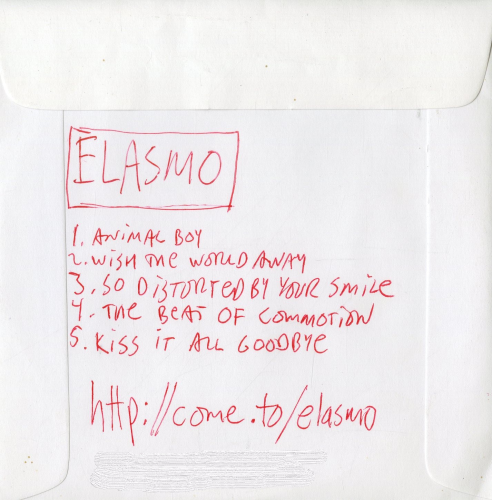 ELASMO
1. ANIMAL BOY
2. WISH THE WORLD AWAY
3. SO DISTORTED BY YOUR SMILE
4. THE BEAT OF COMMOTION
5. KISS IT ALL GOODBYE
http://come.to/elasmo